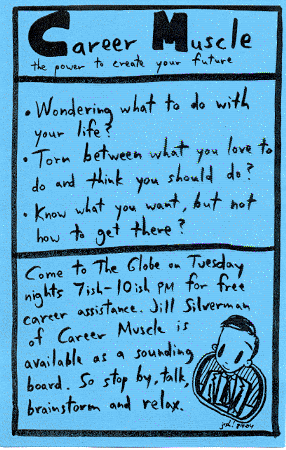 Career Muscle
the power to create your future
• Wondering what to do with
your life?
• Torn between what you love to
do and think you should do?
• Know what you want, but not
how to get there?
Come to The Globe on Tuesday
nights 7ish-10ish PM for free
career assistance. Jill Silverman
of Career Muscle is
available as a sounding
board. So stop by, talk,
brainstorm and relax.